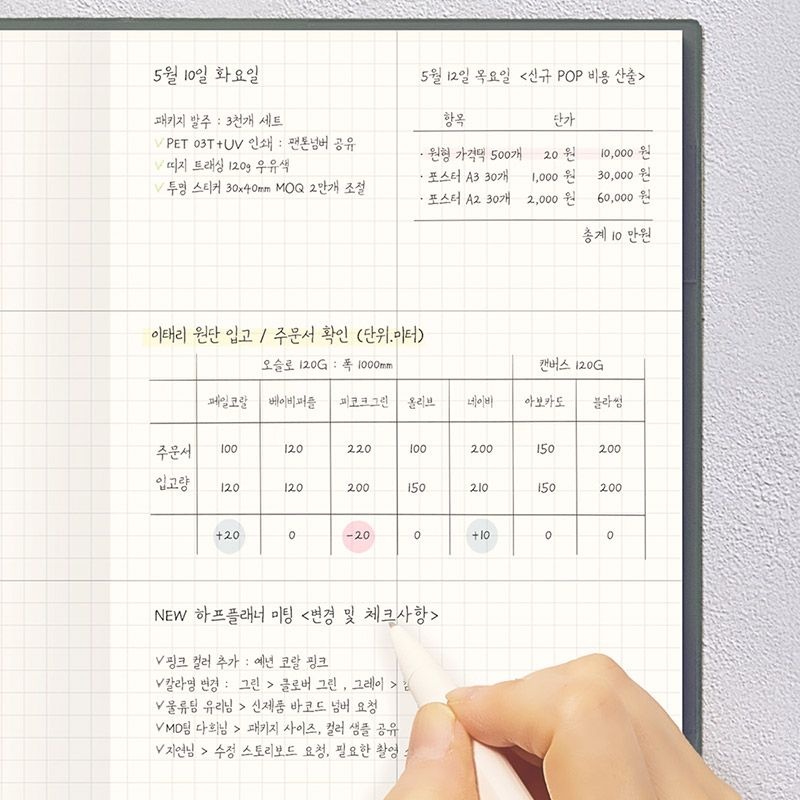 5월 10일 화요일
패키지 발주 : 3천개 세트
✓ PET 03T+UV 인쇄 : 팬톤넘버 공유
✓ 띠지 트래싱 120g 우유색
✓ 투명 스티커 30x40mm MOQ 2만개 조절
5월 12일 목요일 <신규 POP 비용 산출>
항목 단가
· 원형 가격택 500개 20 원 10,000 원
· 포스터 A3 30개 1,000 원 30,000 원
· 포스터 A2 30개 2,000 원 60,000 원
총계 10 만원
이태리 원단 입고 / 주문서 확인 (단위.미터)
오슬로 120G : 폭 1000mm 캔버스 120G
페일코랄 베이비퍼플 피코크그린 올리브 네이비 아보카도 블라썸
주문서 100 120 220 100 200 150 200
입고량 120 120 200 150 210 150 200
+20 0 -20 0 +10 0 0
NEW 하프플래너 미팅 <변경 및 체크사항>
✓ 핑크 컬러 추가 : 예년 코랄 핑크
✓ 칼라명 변경 : 그린 > 클로버 그린 , 그레이 >
✓ 물류팀 유리님 > 신제품 바코드 넘버 요청
✓ MD팀 다희님 > 패키지 사이즈, 컬러 샘플 공유
✓ 지연님 > 수정 스토리보드 요청, 필요한 촬영